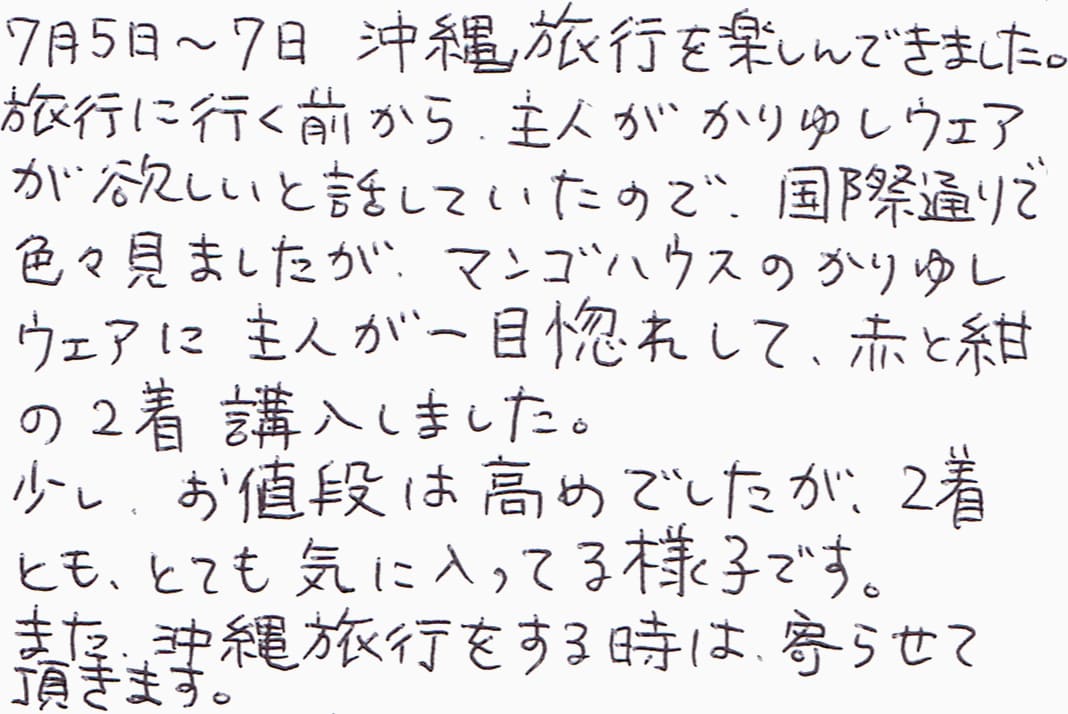 7月5日～7日 沖縄旅行を楽しんできました。
旅行に行く前から、主人がかりゆしウェア
が欲しいと話していたので、国際通りで
色々見ましたが、マンゴハウスのかりゆし
ウェアに主人が一目惚れして、赤と紺
の2着 講入しました。
少し、お値段は高めでしたが、2着
とも、とても気に入ってる様子です。
また、沖縄旅行をする時は、寄らせて
頂きます。